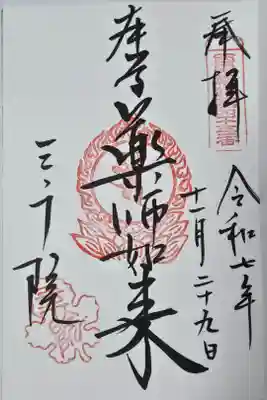 奉拝
令和七年
十一月二十九日
本尊薬師如来
三千院